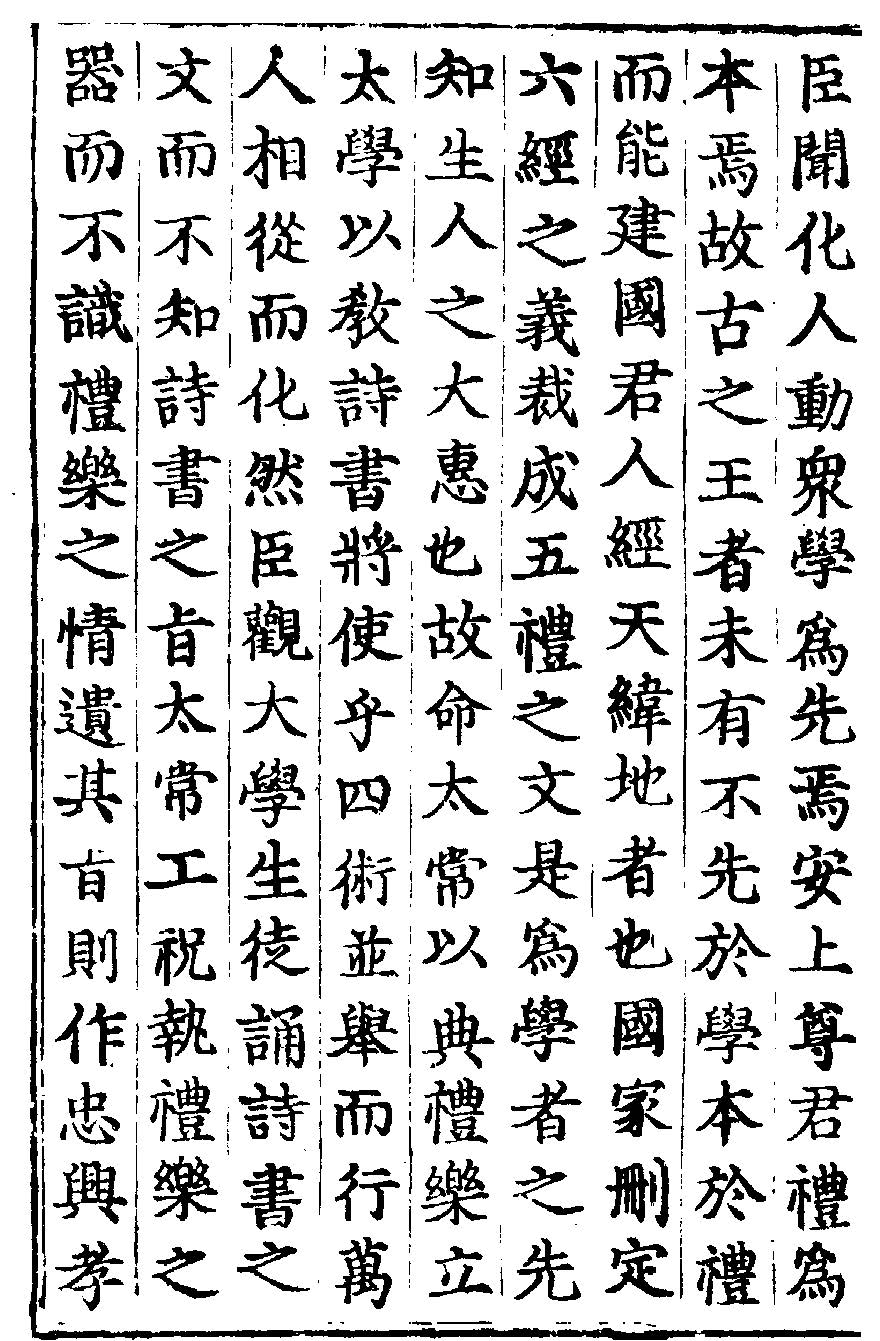 臣聞化人動衆學爲先焉安上尊君禮爲
本焉故古之王者未有不先於學本於禮
而能建國君人經天緯地者也國家刪定
六經之義裁成五禮之文是爲學者之先
知生人之大惠也故命太常以典禮樂立
太學以教詩書將使乎四術並舉而行萬
人相從而化然臣觀大學生徒誦詩書之
文而不知詩書之旨太常工祝執禮樂之
器而不識禮樂之情遺其旨則作忠興孝